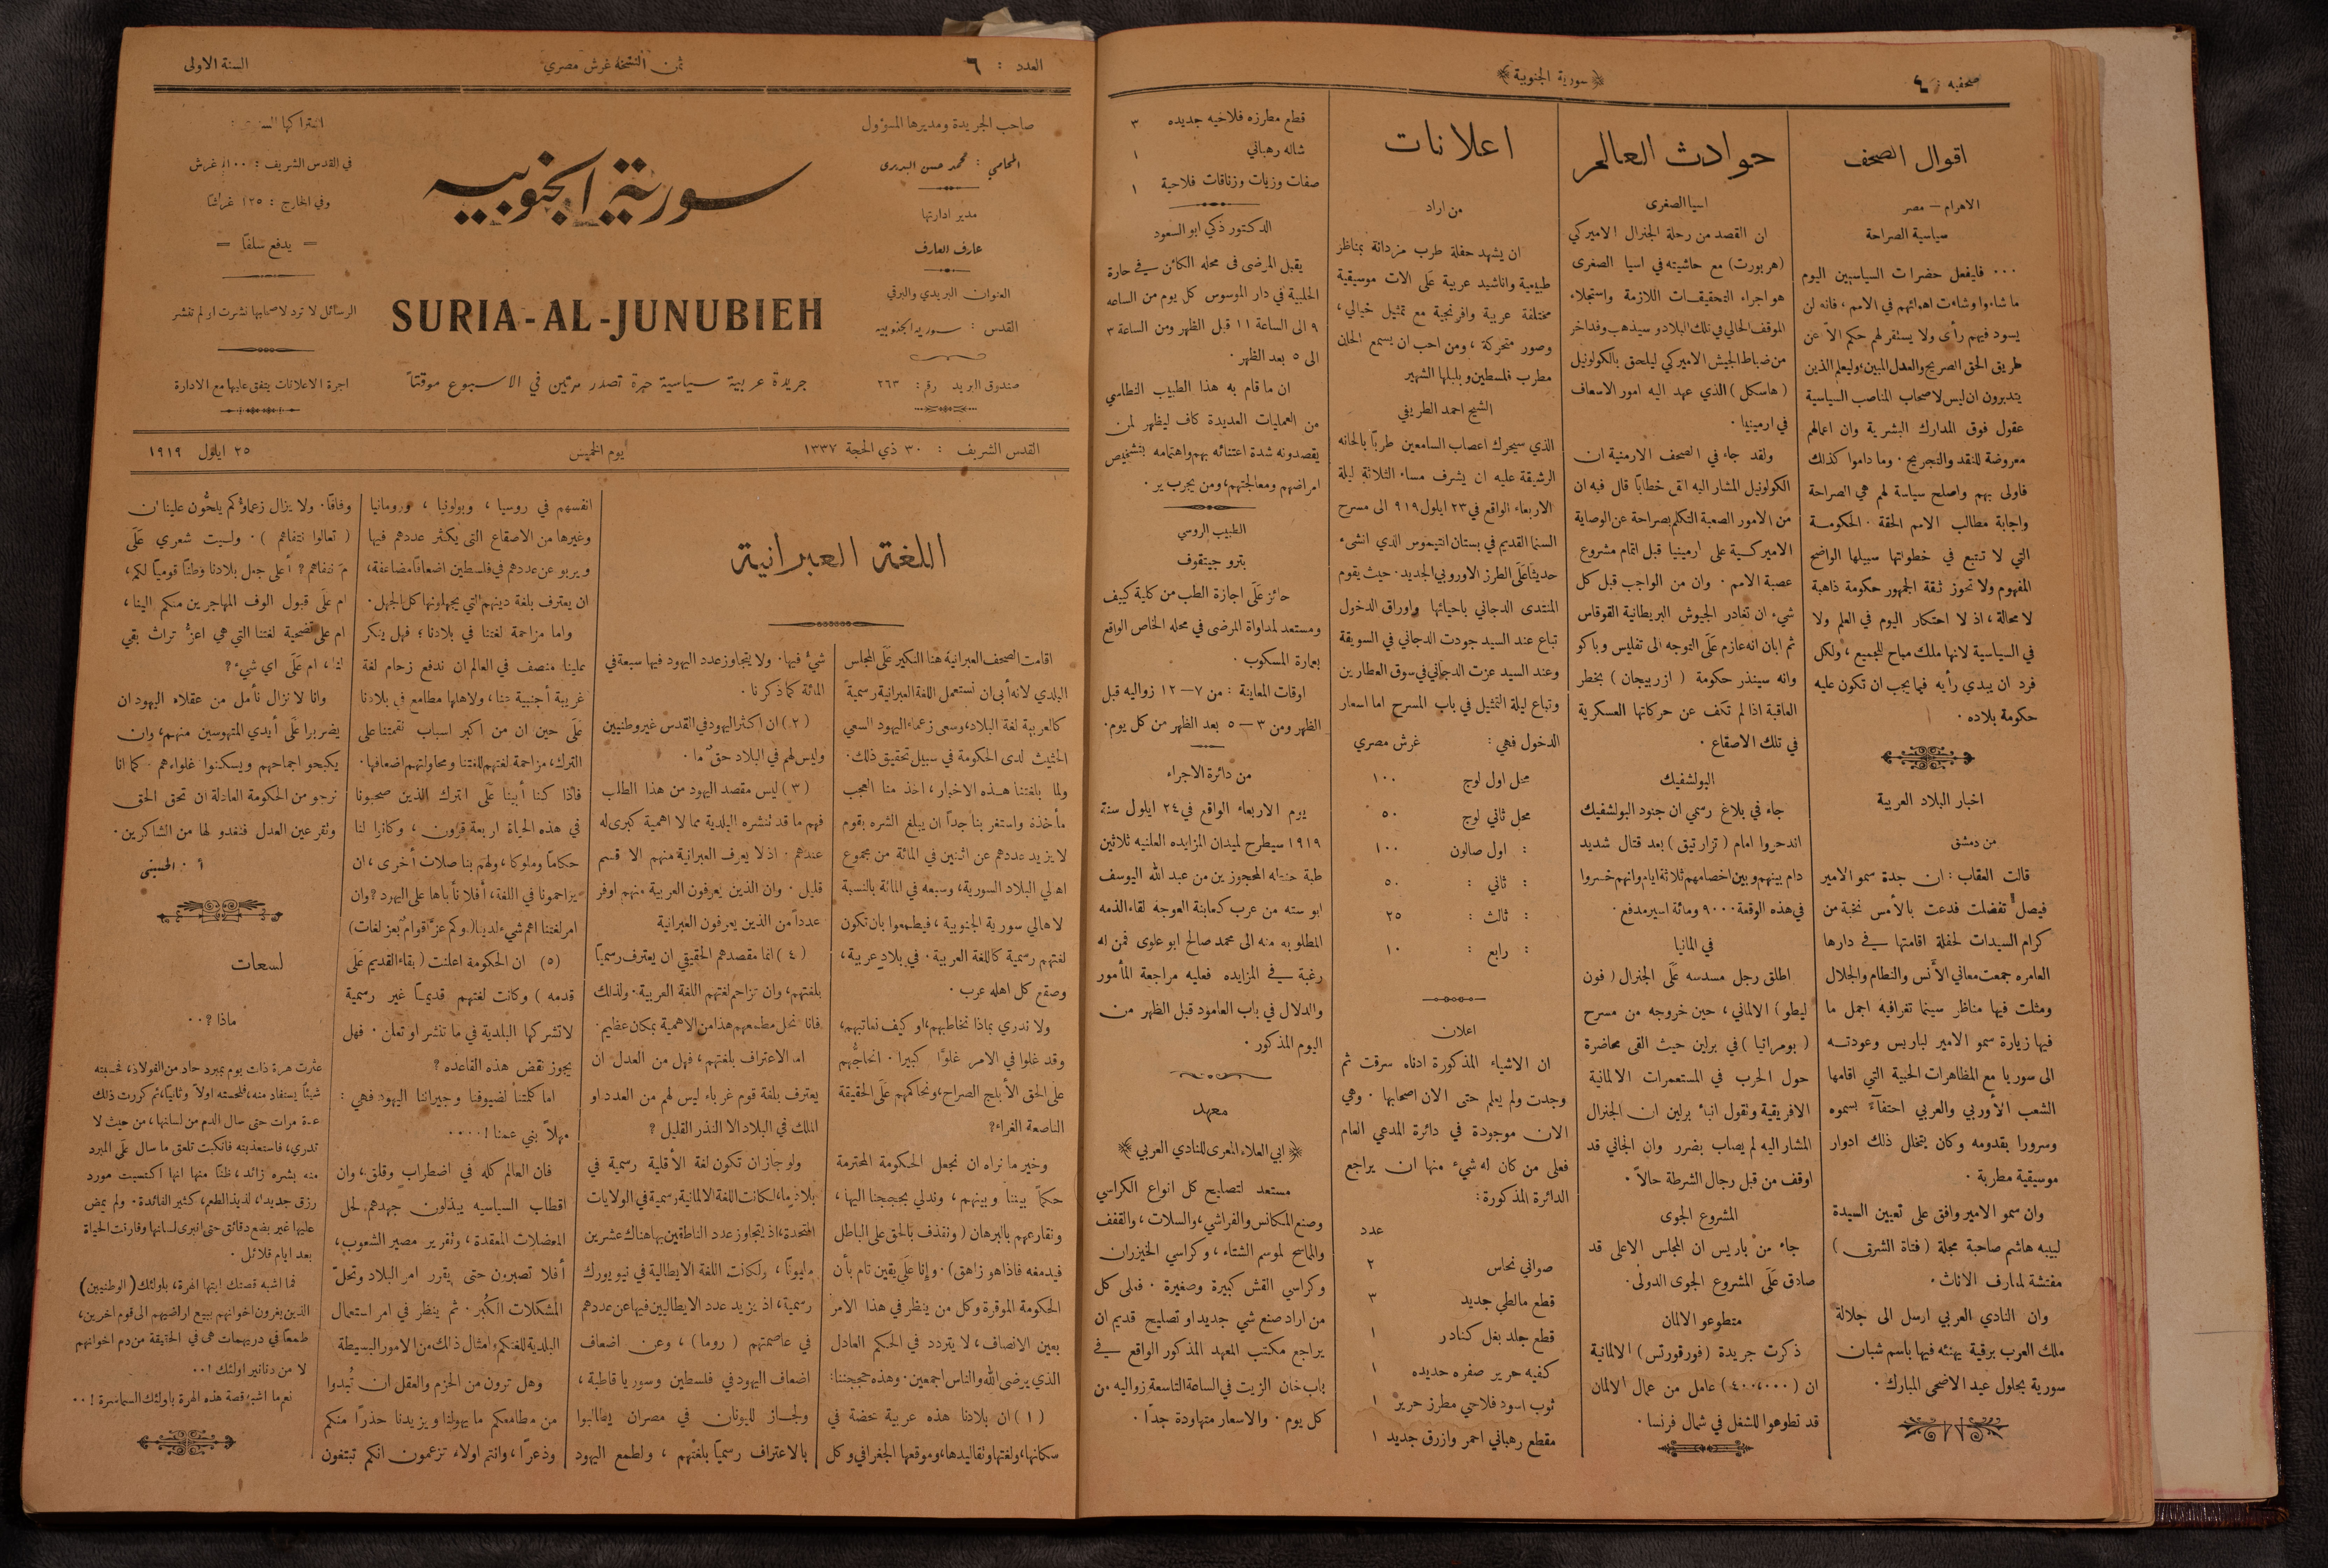 صحفيه : ٤
﴿ سورية الجنوبية ﴾
اقوال الصحف
الاهرام — مصر
سياسية الصراحة
٠٠٠ فليفعل حضرات السياسيين اليوم
ما شاءوا وشاءت اهوائهم في الامم ، فانه لن
يسود فيهم رأى ولا يستقر لهم حكم الاّ عن
طريق الحق الصريح والعدل المبين ، وليعلم الذين
يتدبرون ان ليس لاصحاب المناصب السياسية
عقول فوق المدارك البشرية وان اعمالهم
معروضة للنقد والتجريح ٠ وما داموا كذلك
فاولى بهم واصلح سياسة لهم هي الصراحة
واجابة مطالب الامم الحقة ٠ الحكومة
التي لا تتبع في خطواتها سبيلها الواضح
المفهوم ولا تحوز ثقة الجمهور حكومة ذاهبة
لا محالة ، اذ لا احتكار اليوم في العلم ولا
في السياسية لانها ملك مباح للجميع ، ولكل
فرد ان يبدي رأيه فيما يجب ان تكون عليه
حكومة بلاده ٠
اخبار البلاد العربية
من دمشق
قالت العقاب : ان جدة سمو الامير
فيصل تفضلت فدعت بالأمس نخبة من
كرام السيدات لحفلة اقامتها في دارها
العامره جمعت معاني الأنس والنظام والجلال
ومثلت فيها مناظر سينما تغرافيه اجمل ما
فيها زيارة سمو الامير لباريس وعودته
الى سوريا مع المظاهرات الحبية التي اقامها
الشعب الأوربي والعربي احتفآءً بسموه
وسرورا بقدومه وكان يتخلل ذلك ادوار
موسيقية مطربة ٠
وان سمو الامير وافق على تعيين السيدة
لبيبه هاشم صاحبة مجلة ( فتاة الشرق )
مفتشة لمعارف الاناث ٠
وان النادي العربي ارسل الى جلالة
ملك العرب برقية يهنئه فيها باسم شبان
سورية بحلول عيد الاضحى المبارك ٠
حوادث العالم
اسيا الصغرى
ان القصد من رحلة الجنرال الاميركي
( هربورت ) مع حاشيته في اسيا الصغرى
هو اجراء التحقيقات اللازمة واستجلاء
الموقف الحالي في تلك البلاد و سيذهب وفد اخر
من ضباط الجيش الاميركي ليلحق بالكولونيل
( هاسكل ) الذي عهد اليه امور الاسعاف
في ارمينيا ٠
ولقد جاء في الصحف الارمنية ان
الكولونيل المشار اليه القى خطابًا قال فيه ان
من الامور الصعبة التكلم بصراحة عن الوصاية
الاميركية على ارمينيا قبل اتمام مشروع
عصبة الامم ٠ وان من الواجب قبل كل
شيء ان تغادر الجيوش البريطانية القوقاس
ثم ابان انه عازم على التوجه الى تفليس وباكو
وانه سينذر حكومة ( ازربيجان ) بخطر
العاقبة اذا لم تكف عن حركاتها العسكرية
في تلك الاصقاع ٠
البولشفيك
جاء في بلاغ رسمي ان جنود البولشفيك
اندحروا امام ( تزارتيق ) بعد قتال شديد
دام بينهم وبين اخصامهم ثلاثة ايام وانهم خسروا
في هذه الوقعة ٩٠٠٠ ومائة اسير مدفع ٠
في المانيا
اطلق رجل مسدسه على الجنرال ( فون
ليطو ) الالماني ، حين خروجه من مسرح
( بومراتيا ) في برلين حيث القى محاضرة
حول الحرب في المستعمرات الالمانية
الافريقية وتقول انباء برلين ان الجنرال
المشار اليه لم يصاب بضرر وان الجاني قد
اوقف من قبل رجال الشرطة حالاً ٠
المشروع الجوى
جاء من باريس ان المجلس الاعلى قد
صادق على المشروع الجوى الدولى ٠
متطوعو الالمان
ذكرت جريدة ( فورفورتس ) الالمانية
ان ( ٤٠٠،٠٠٠ ) عامل من عمال الالمان
قد تطوعوا للشغل في شمال فرنسا ٠
اعلانات
من اراد
ان يشهد حفلة طرب مزدانة بمناظر
طبيعية واناشيد عربية على الات موسيقية
مختلفة عربية وافرنجية مع تمثيل خيالي ،
وصور متحركة ، ومن احب ان يسمع الحان
مطرب فلسطين وبلبلها الشهير
الشيخ احمد الطريفي
الذي سيحرك اعصاب السامعين طربًا بالحانه
الرشيقة عليه ان يشرف مساء الثلاثة ليلة
الاربعاء الواقع في ٢٣ ايلول ٩١٩ الى مسرح
السنما القديم في بستان انتيموس الذي انشىء
حديثًا على الطرز الاوروبي الجديد ٠ حيث يقوم
المنتدى الدجاني باحيائها واوراق الدخول
تباع عند السيد جودت الدجاني في السويقة
وعند السيد عزت الدجاني في سوق العطارين
وتباع ليلة التمثيل في باب المسرح اما اسعار
الدخول فهي : غرش مصري
محل اول لوج ١٠٠
محل ثاني لوج ٥٠
: اول صالون ١٠٠
: ثاني : ٥٠
: ثالث : ٢٥
: رابع : ١٠
اعلان
ان الاشياء المذكورة ادناه سرقت ثم
وجدت ولم يعلم حتى الان اصحابها ٠ وهي
الان موجودة في دائرة المدعي العام
فعلى من كان له شيء منها ان يراجع
الدائرة المذكورة :
عدد
صواني نحاس ٢
قطع مالطي جديد ٣
قطع جلد بغل كنادر ١
كفيه حرير صفره حديده ١
ثوب اسود فلاحي مطرز حرير ١
مقطع رهباني احمر وازرق جديد ١
قطع مطرزه فلاحيه جديده ٣
شاله رهباني ١
صفات وزيات وزناقات فلاحية ١
الدكتور ذكي ابو السعود
يقبل المرضى فى محله الكائن في حارة
الحلبية في دار الموسوس كل يوم من الساعه
٩ الى الساعة ١١ قبل الظهر ومن الساعة ٣
الى ٥ بعد الظهر ٠
ان ما قام به هذا الطبيب النطاسي
من العمليات العديدة كاف ليظهر لمن
يقصدونه شدة اعتنائه بهم واهتمامه بتشخيص
امراضهم ومعالجتهم ، ومن يجرب ير ٠
الطبيب الروسي
بترو جيتقوف
حائز على اجازة الطب من كلية كييف
ومستعد لمداواة المرضى في محله الخاص الواقع
بعمارة المسكوب ٠
اوقات المعاينة : من ٧ — ١٢ زواليه قبل
الظهر ومن ٣ — ٥ بعد الظهر من كل يوم ٠
من دائرة الاجراء
يوم الاربعاء الواقع في ٢٤ ايلول سنة
١٩١٩ سيطرح لميدان المزايده العلنيه ثلاثين
طبة حنطه المحجوزين من عبد الله اليوسف
ابو سته من عرب كمابنة العوجه لقاء الذمه
المطلوبه منه الى محمد صالح ابو علوى فمن له
رغبة في المزايده فعليه مراجعة المأمور
والدلال في باب العامود قبل الظهر من
اليوم المذكور ٠
معهد
﴿ ابي العلاء المعرى للنادي العربي ﴾
مستعد لتصليح كل انواع الكراسي
وصنع المكانس والفراشي ، والسلات ، والقفف
والماسح لموسم الشتاء ، وكراسي الخيزران
وكراسي القش كبيرة وصغيرة ٠ فعلى كل
من اراد صنع شي جديد او تصليح قديم ان
يراجع مكتب المعهد المذكور الواقع في
باب خان الزيت في الساعة التاسعة زواليه من
كل يوم ٠ والاسعار متهاودة جدًا ٠
العدد : ٦
ثمن النسخة غرش مصري
السنة الاولى
صاحب الجريدة ومديرها المسؤول
المحامي : محمد حسن البديرى
مدير ادارتها
عارف العارف
العنوان البريدي والبرقي
القدس : سورية الجنوبيه
صندوق البريد رقم : ٢٦٣
سورية الجنوبيه
SURIA-AL-JUNUBIEH
جريدة عربية سياسية حرة تصدر مرتين في الاسبوع موقتاً
اشتراكها السنوي :
في القدس الشريف : ١٠٠ غرش
وفي الخارج : ١٢٥ غراشًا
= يدفع سلفًا =
الرسائل لا ترد لاصحابها نشرت او لم تنشر
اجرة الاعلانات يتفق عليها مع الادارة
القدس الشريف : ٣٠ ذي الحجة ١٣٣٧
يوم الخميس
٢٥ ايلول ١٩١٩
اللغة العبرانية
اقامت الصحف العبرانية هنا النكير على المجلس
البلدي لانه أبى ان نستعمل اللغة العبرانية رسمية
كالعربية لغة البلاد ، وسعى زعماء اليهود السعي
الحثيث لدى الحكومة في سبيل تحقيق ذلك ٠
ولما بلغتنا هذه الاخبار ، اخذ منا العجب
مأخذه واستغربنا جداً ان يبلغ الشره بقوم
لا يزيد عددهم عن اثنين في المائة من مجموع
اهالي البلاد السورية ، وسبعه في المائة بالنسبة
لاهالي سورية الجنوبية ، فيطمعوا بان تكون
لغتهم رسمية كاللغة العربية ٠ في بلاد عربية ،
وصقع كل اهله عرب ٠
ولا ندري بماذا نخاطبهم ، او كيف نعاتبهم ،
وقد غلوا في الامر غلوًّا كبيرا ٠ انحاجّهم
على الحق الأبلج الصراح ، ونحاكمهم على الحقيقة
الناصعة الغراء ؟
وخير ما نراه ان نجعل الحكومة المحترمة
حكماً بيننا وبينهم ، وندلي بحججنا اليها ،
ونقارعهم بالبرهان ( ونقذف بالحق على الباطل
فيدمغه فاذا هو زاهق ) ٠ وإنا على يقين تام بأن
الحكومة الموقرة وكل من ينظر في هذا الامر
بعين الانصاف ، لا يتردد في الحكم العادل
الذي يرضى الله والناس اجمعين ٠ وهذه حججنا :
( ١ ) ان بلادنا هذه عربية محضة في
سكانها ، ولغتها وتقاليدها ، وموقعها الجغرافي وكل
شيء فيها ٠ ولا يتجاوز عدد اليهود فيها سبعة في
المائة كما ذكرنا ٠
( ٢ ) ان اكثر اليهود في القدس غير وطنيين
وليس لهم في البلاد حق ما ٠
( ٣ ) ليس مقصد اليهود من هذا الطلب
فهم ما قد تنشره البلدية مما لا اهمية كبرى له
عندهم ٠ اذ لا يعرف العبرانية منهم الا قسم
قليل ٠ وان الذين يعرفون العربية منهم اوفر
عدداً من الذين يعرفون العبرانية
( ٤ ) انما مقصدهم الحقيقي ان يعترف رسميًا
بلغتهم ، وان تزاحم لغتهم اللغة العربية ٠ ولذلك
فانا نحل مطمعهم هذا من الاهمية بمكان عظيم ٠
اما الاعتراف بلغتهم ، فهل من العدل ان
يعترف بلغة قوم غرباء ليس لهم من العدد او
الملك في البلاد الا النذر القليل ؟
ولو جاز ان تكون لغة الأقلية رسمية في
بلاد ما ، لكانت اللغة الالمانية رسمية في الولايات
المتحدة ، اذ يتجاوز عدد الناطقين بها هناك عشرين
مليونًا ، ولكانت اللغة الايطالية في نيويورك
رسمية ، اذ يزيد عدد الايطاليين فيها عن عددهم
في عاصمتهم ( روما ) ، وعن اضعاف
اضعاف اليهود في فلسطين وسوريا قاطبة ،
ولجاز لليونان في مصر ان يطالبوا
بالاعتراف رسميًا بلغتهم ، ولطمع اليهود
انفسهم في روسيا ، وبولونيا ، ورومانيا
وغيرها من الاصقاع التى يكثر عددهم فيها
ويربو عن عددهم في فلسطين اضعافًا مضاعفة ،
ان يعترف بلغة دينهم التي يجهلونها كل الجهل ٠
واما مزاحمة لغتنا في بلادنا ؛ فهل ينكر
علينا منصف في العالم ان ندفع زحام لغة
غريبة أجنبية عنا ، ولاهلها مطامع في بلادنا
على حين ان من اكبر اسباب نقمتنا على
الترك ، مزاحمة لغتهم للغتنا ومحاولتهم اضعافها ٠
فاذا كنا أبينا على الترك الذين صحبونا
في هذه الحياة اربعة قرون ، وكانوا لنا
حكامًا وملوكا ، ولهم بنا صلات أخرى ، ان
يزاحمونا في اللغة ، أفلا نأباها على اليهود ؟ وان
امر لغتنا اهم شيء لدينا ( وكم عزّ أقوام بعز لغات )
( ٥ ) ان الحكومة اعلنت ( بقاء القديم على
قدمه ) وكانت لغتهم قديمًا غير رسمية
لا تشركها البلدية في ما تنشر او تعلن ٠ فهل
يجوز نقض هذه القاعده ؟
اما كلمتنا لضيوفنا وجيراننا اليهود فهي :
مهلاً بني عمنا ! ٠٠٠٠
فان العالم كله في اضطراب وقلق ، وان
اقطاب السياسيه يبذلون جهدهم لحل
المعضلات المعقدة ، وتقرير مصير الشعوب ،
أفلا تصبرون حتى يقرر امر البلاد وتحلّ
المشكلات الكُبر ٠ ثم ينظر في امر استعمال
البلدية للغتكم وامثال ذلك من الامور البسيطة
وهل ترون من الحزم والعقل ان تُبدوا
من مطامعكم ما يهولنا ويزيدنا حذرًا منكم
وذعرًا ، وانتم اولاء تزعمون انكم تبتغون
وفاقًا ٠ ولا يزال زعماؤكم يلحّون علينا ان
( تعالوا نتفاهم ) ٠ وليت شعري على
مَ نتفاهم ؟ أعلى جعل بلادنا وطنًا قوميًا لكم ،
ام على قبول الوف المهاجرين منكم الينا ،
ام على تضحية لغتنا التي هي اعزّ تراث بقي
لنا ، ام على اي شيء ؟
وانا لا نزال نأمل من عقلاء اليهود ان
يضربوا على أيدي المتهوسين منهم ، وان
يكبحو اجماحهم ويسكنوا غلواءهم ٠ كما انا
نرجو من الحكومة العادلة ان تحق الحق
ونقر عين العدل فنغدو لها من الشاكرين ٠
أ ٠ الحسيني
لسعات
ماذا ؟ ٠٠
عثرت هرة ذات يوم بمبرد حاد من الفولاذ ، فحسبته
شيئًا يستفاد منه ، فلحسته اولاً وثانيًا ، ثم كررت ذلك
عدة مرات حتى سال الدم من لسانها ، من حيث لا
تدري ، فاستعذبته فانكبت تلعق ما سال على المبرد
منه بشره زائد ، ظنًا منها انها اكتسبت مورد
رزق جديد ا ، لذيذ الطعم ، كثير الفائدة ٠ ولم يمض
عليها غير بضع دقائق حتى انبرى لسانها وفارقت الحياة
بعد ايام قلائل ٠
فما اشبه قصتك ايتها الهرة ، باولئك ( الوطنيين )
الذين يغرون اخوانهم ببيع اراضيهم الى قوم اخرين ،
طمعًا في دريهمات هي في الحقيقة من دم اخوانهم
لا من دنانير اولئك ! ٠٠
نعم ما اشبه قصة هذه الهرة باولئك السماسرة ! ٠٠